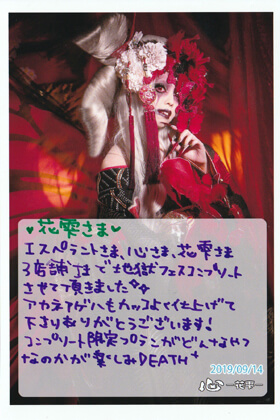 ♥花雫さま♥
エスペラントさま、心さま、花雫さま
3店舗さまで地獄フェスコンプリート
させて頂きました✧✧
アカネアゲハもカッコよく仕上げて
下さりありがとうございます!
コンプリート限定プランがどんなやつ
なのかが楽しみDEATH+
2019/09/14
心 —花雫—